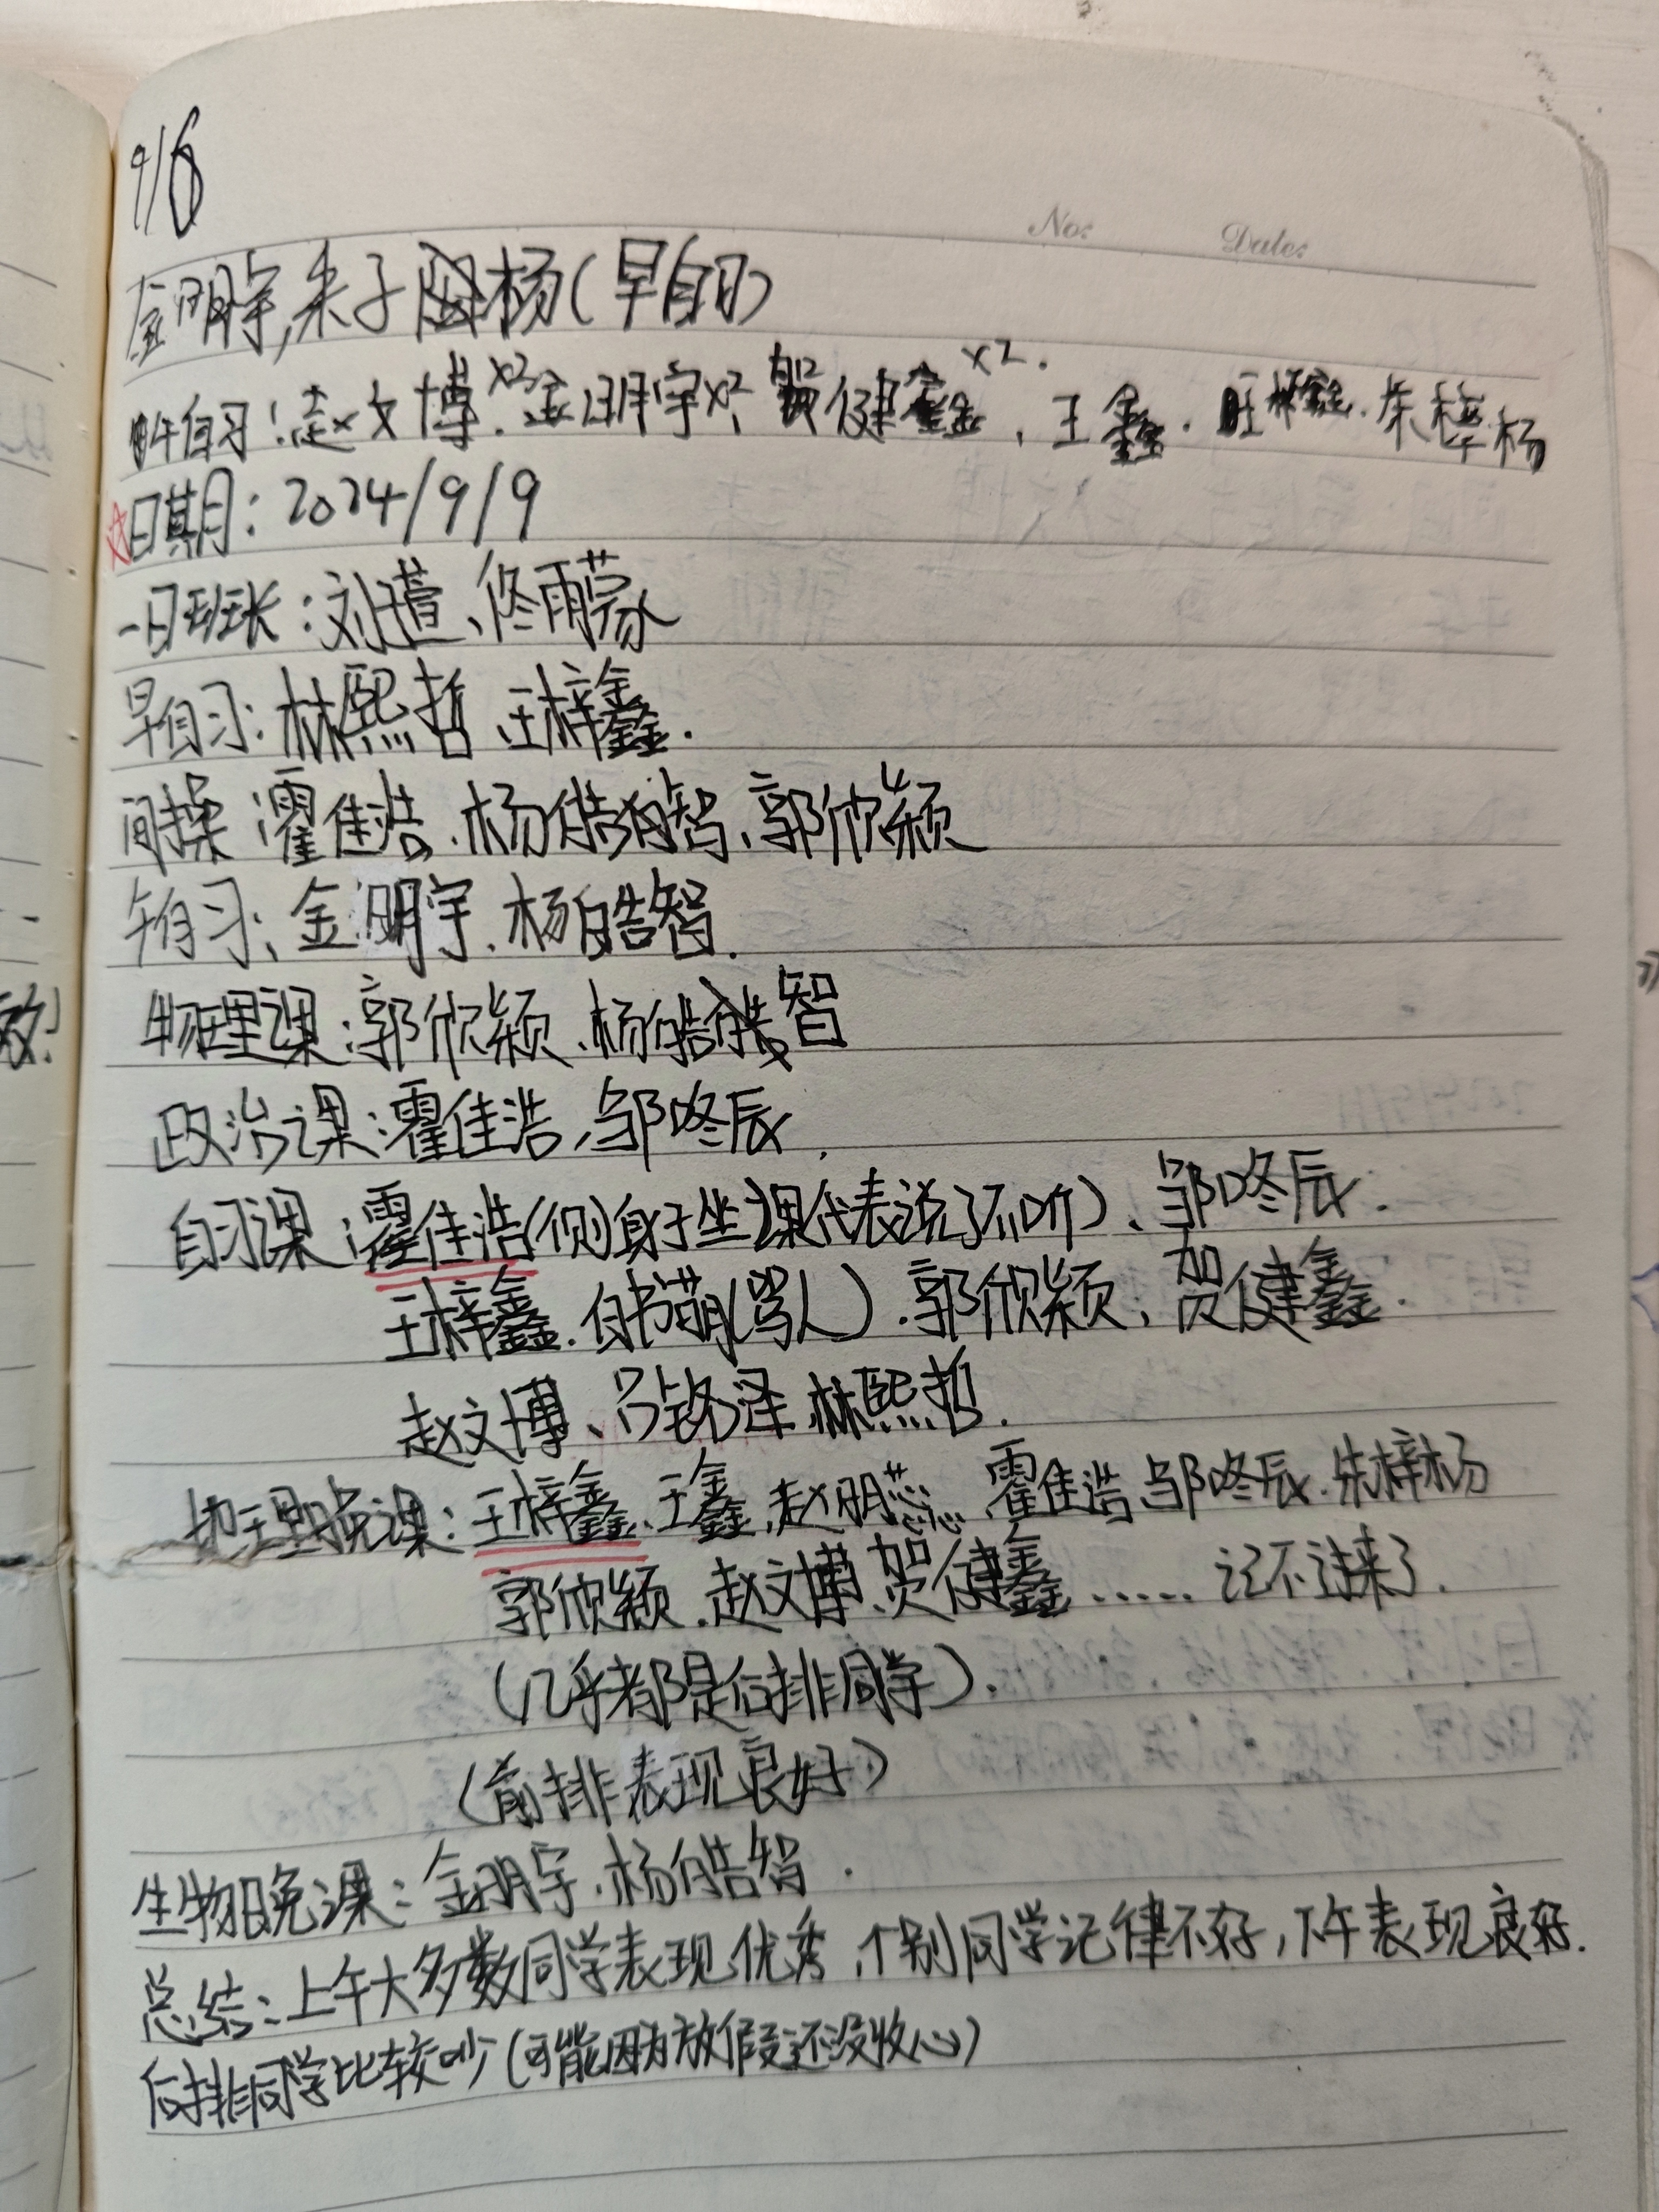 9/6
No: Date:
金明宇,朱子杨(早自习)
午自习:赵文博×2.金明宇×2,贺健鑫×2.王鑫.朱梓杨
日期:2024/9/9
一日班长:刘萱、佟雨蒙
早自习:林熙哲、王梓鑫.
间操:霍佳浩.杨皓智、郭欣颖
午自习:金明宇.杨皓智.
物理课:郭欣颖.杨皓智
政治课:霍佳浩,邹咚辰.
自习课:霍佳浩(侧身子坐课代表说了不听)、邹咚辰.
王梓鑫.白书萌(骂人).郭欣颖,贺健鑫.
赵文博、吕铭泽,林熙哲.
地理晚课:王梓鑫、王鑫,赵明蕊、霍佳浩,邹咚辰.朱梓杨
郭欣颖.赵文博,贺健鑫……记不过来了.
(几乎都是后排同学).
(前排表现良好)
生物晚课:金明宇.杨皓智.
总结:上午大多数同学表现优秀,个别同学记律不好,下午表现良好.
后排同学比较吵(可能因为放假还没收心)